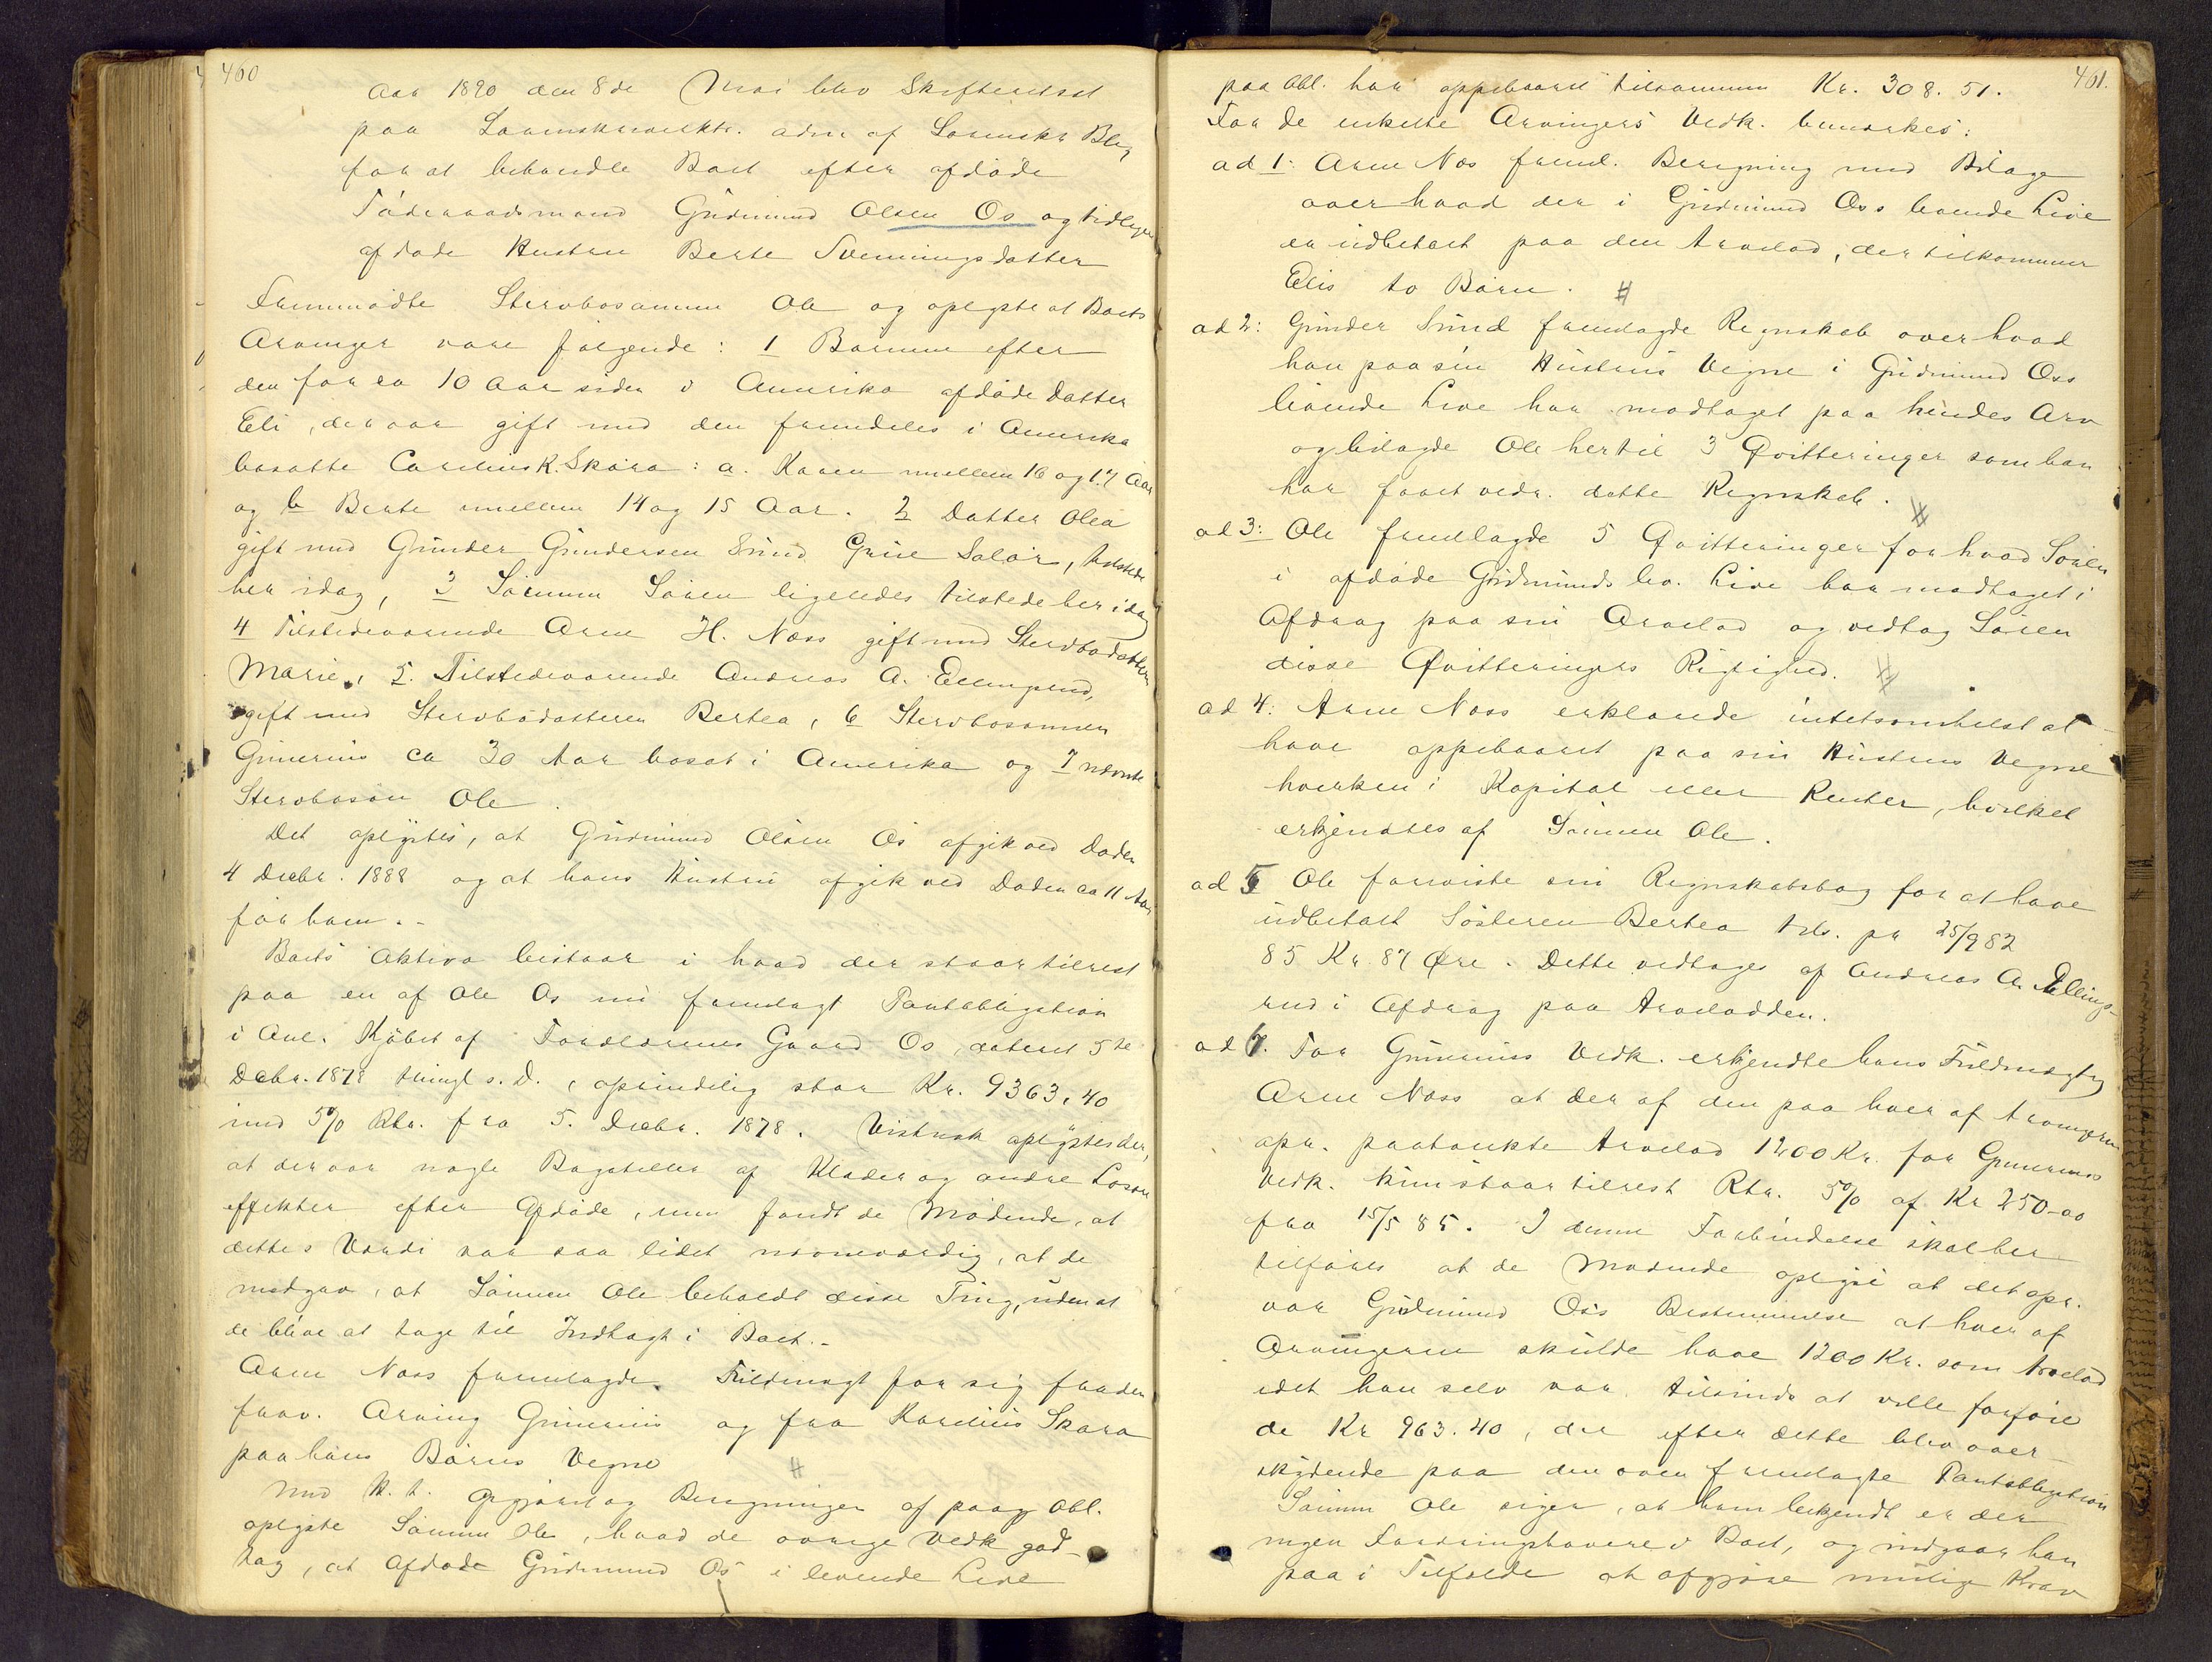 460
Aar 1890 den 8de Mai blev Skifteretsat
paa Laamskrverktr. adm af Lorinskr Bleg
for at behandle Boet efter afdöde
Föderaadsmand Gudmund Olsen Os og tidligere
afdöde Hustru Berte Svenningsdatter
Fremmödte Stervbosönnen Ole og oplyste at Boets
Arvinger vare fölgende: 1 Börnene efter
den for ca 10 Aar siden i Amerika afdöde Datter
Eli, der var gift med den fremdeles i Amerika
bosatte Carelius K. Skära: a. Karen mellem 16 og 17 Aar
og b Berte mellem 14 og 15 Aar. 2 Datter Olea
gift med Gunder Gundersen Sund Grue Solör, tilstede
her idag, 3 Sönnen Sören ligeledes tilstede her idag
4 Tilstedeværende Arne H. Næss gift med Stervbodatteren
Marie, 5. Tilstedeværende Andreas A. Ellingsrud,
gift med Stervbodatteren Bertea, 6 Stervbosönnen
Gunerius ca 30 Aar bosat i Amerika og 7 nævnte
Stervbosön Ole.
Det oplystes, at Gudmund Olsen Os afgik ved Döden
4 Decbr. 1888 og at hans Hustru afgik ved Döden ca 11 Aar
för ham.-
Boets Aktiva bestaar i hvad der staar tilrest
paa en af Ole Os nu fremlagt Pantobligation
i Anl. Kjöbet af Forældrenes Gaard Os, dateret 5te
Decbr. 1878 thingl s. D., oprindelig stor Kr. 9363,40
med 5% Rtr. fra 5. Decbr. 1878. Vistnok oplystes der,
at der var nogle Bagateller af Klæder og andre Lösöre
effekter efter Afdöde, men fandt de Mödende, at
dettes Værdi var saa lidet nævneværdig, at de
medgav, at Sönnen Ole beholdt disse Ting, uden at
de blive at tage til Indtægt i Boet.-
Arne Næss fremlagde Fuldmagt for sig fra den
frav. Arving Gunerius og fra Karelius Skära
paa hans Börns Vegne #
Med H. t. Opgjöret og Beregningen af paag Obl.
oplyste Sönnen Ole, hvad de övrige Vedk god-
tog, at Afdöde Gudmund Os i levende Live
461.
paa Obl. har oppebaaret tilsammen Kr. 308. 51.
For de enkelte Arvingers Vedk. bemærkes:
ad 1: Arne Næs freml. Beregning med Bilage
over hvad der i Gudmund Oss levende Live
er udbetalt paa den Arvelod, der tilkommer
Elis to Börn. #
ad 2: Gunder Sund fremlagde Regnskab over hvad
han paa sin Hustrus Vegne i Gudmund Oss
levende Live har modtaget paa hendes Arv
og bilagde Ole hertil 3 Qvitteringer som han
har faaet vedr. dette Regnskab. #
ad 3: Ole fremlagde 5 Qvitteringer for hvad Sören
i afdöde Gudmunds lev. Live har modtaget i
Afdrag paa sin Arvelod og vedtog Sören
disse Qvitteringers Rigtighed. #
ad 4: Arne Næss erklærede intetsomhelst at
have oppebaaret paa sin Hustrus Vegne
hverken i Kapital eller Renter, hvilket
erkjendtes af Sönnen Ole.
ad 5 Ole foreviste sin Regnskabsbog for at have
udbetalt Sösteren Bertea tils. pr 25/9 82
85 Kr. 87 Øre. Dette vedtages af Andreas A. Ellings-
rud i Afdrag paa Arvelodden.
ad 6. For Gunerius Vedk. erkjendte hans Fuldmægtig
Arne Næss at der af den paa hver af Arvingerne
opr. paatænkte Arvelod 1200 Kr. for Gunerius
Vedk. kun staar tilrest Rtr. 5% af Kr 250-00
fra 15/5 85. I denne Forbindelse skal her
tilföies at de Mödende oplyse at det opr.
var Gudmund Os's Bestemmelse at hver af
Arvingerne skulde have 1200 Kr. som Arvelod
idet han selv var tilsinds at ville forföie
de Kr 963.40, der efter dette blev over-
skydende paa den oven fremlagte Pantobligation
Sönnen Ole siger, at ham bekjendt er der
ingen Fordringshavere i Boet, og indgaar han
paa i Tilfælde at afgjöre mulige Krav